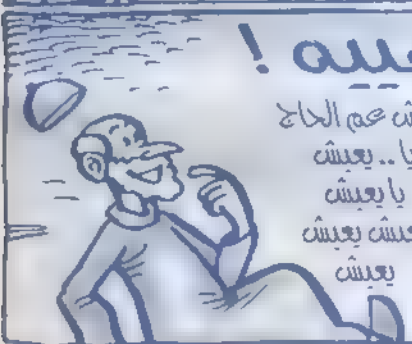 ش عم الحاج
يا .. يعيش
يا يعيش
يعيش يعيش
يعيش